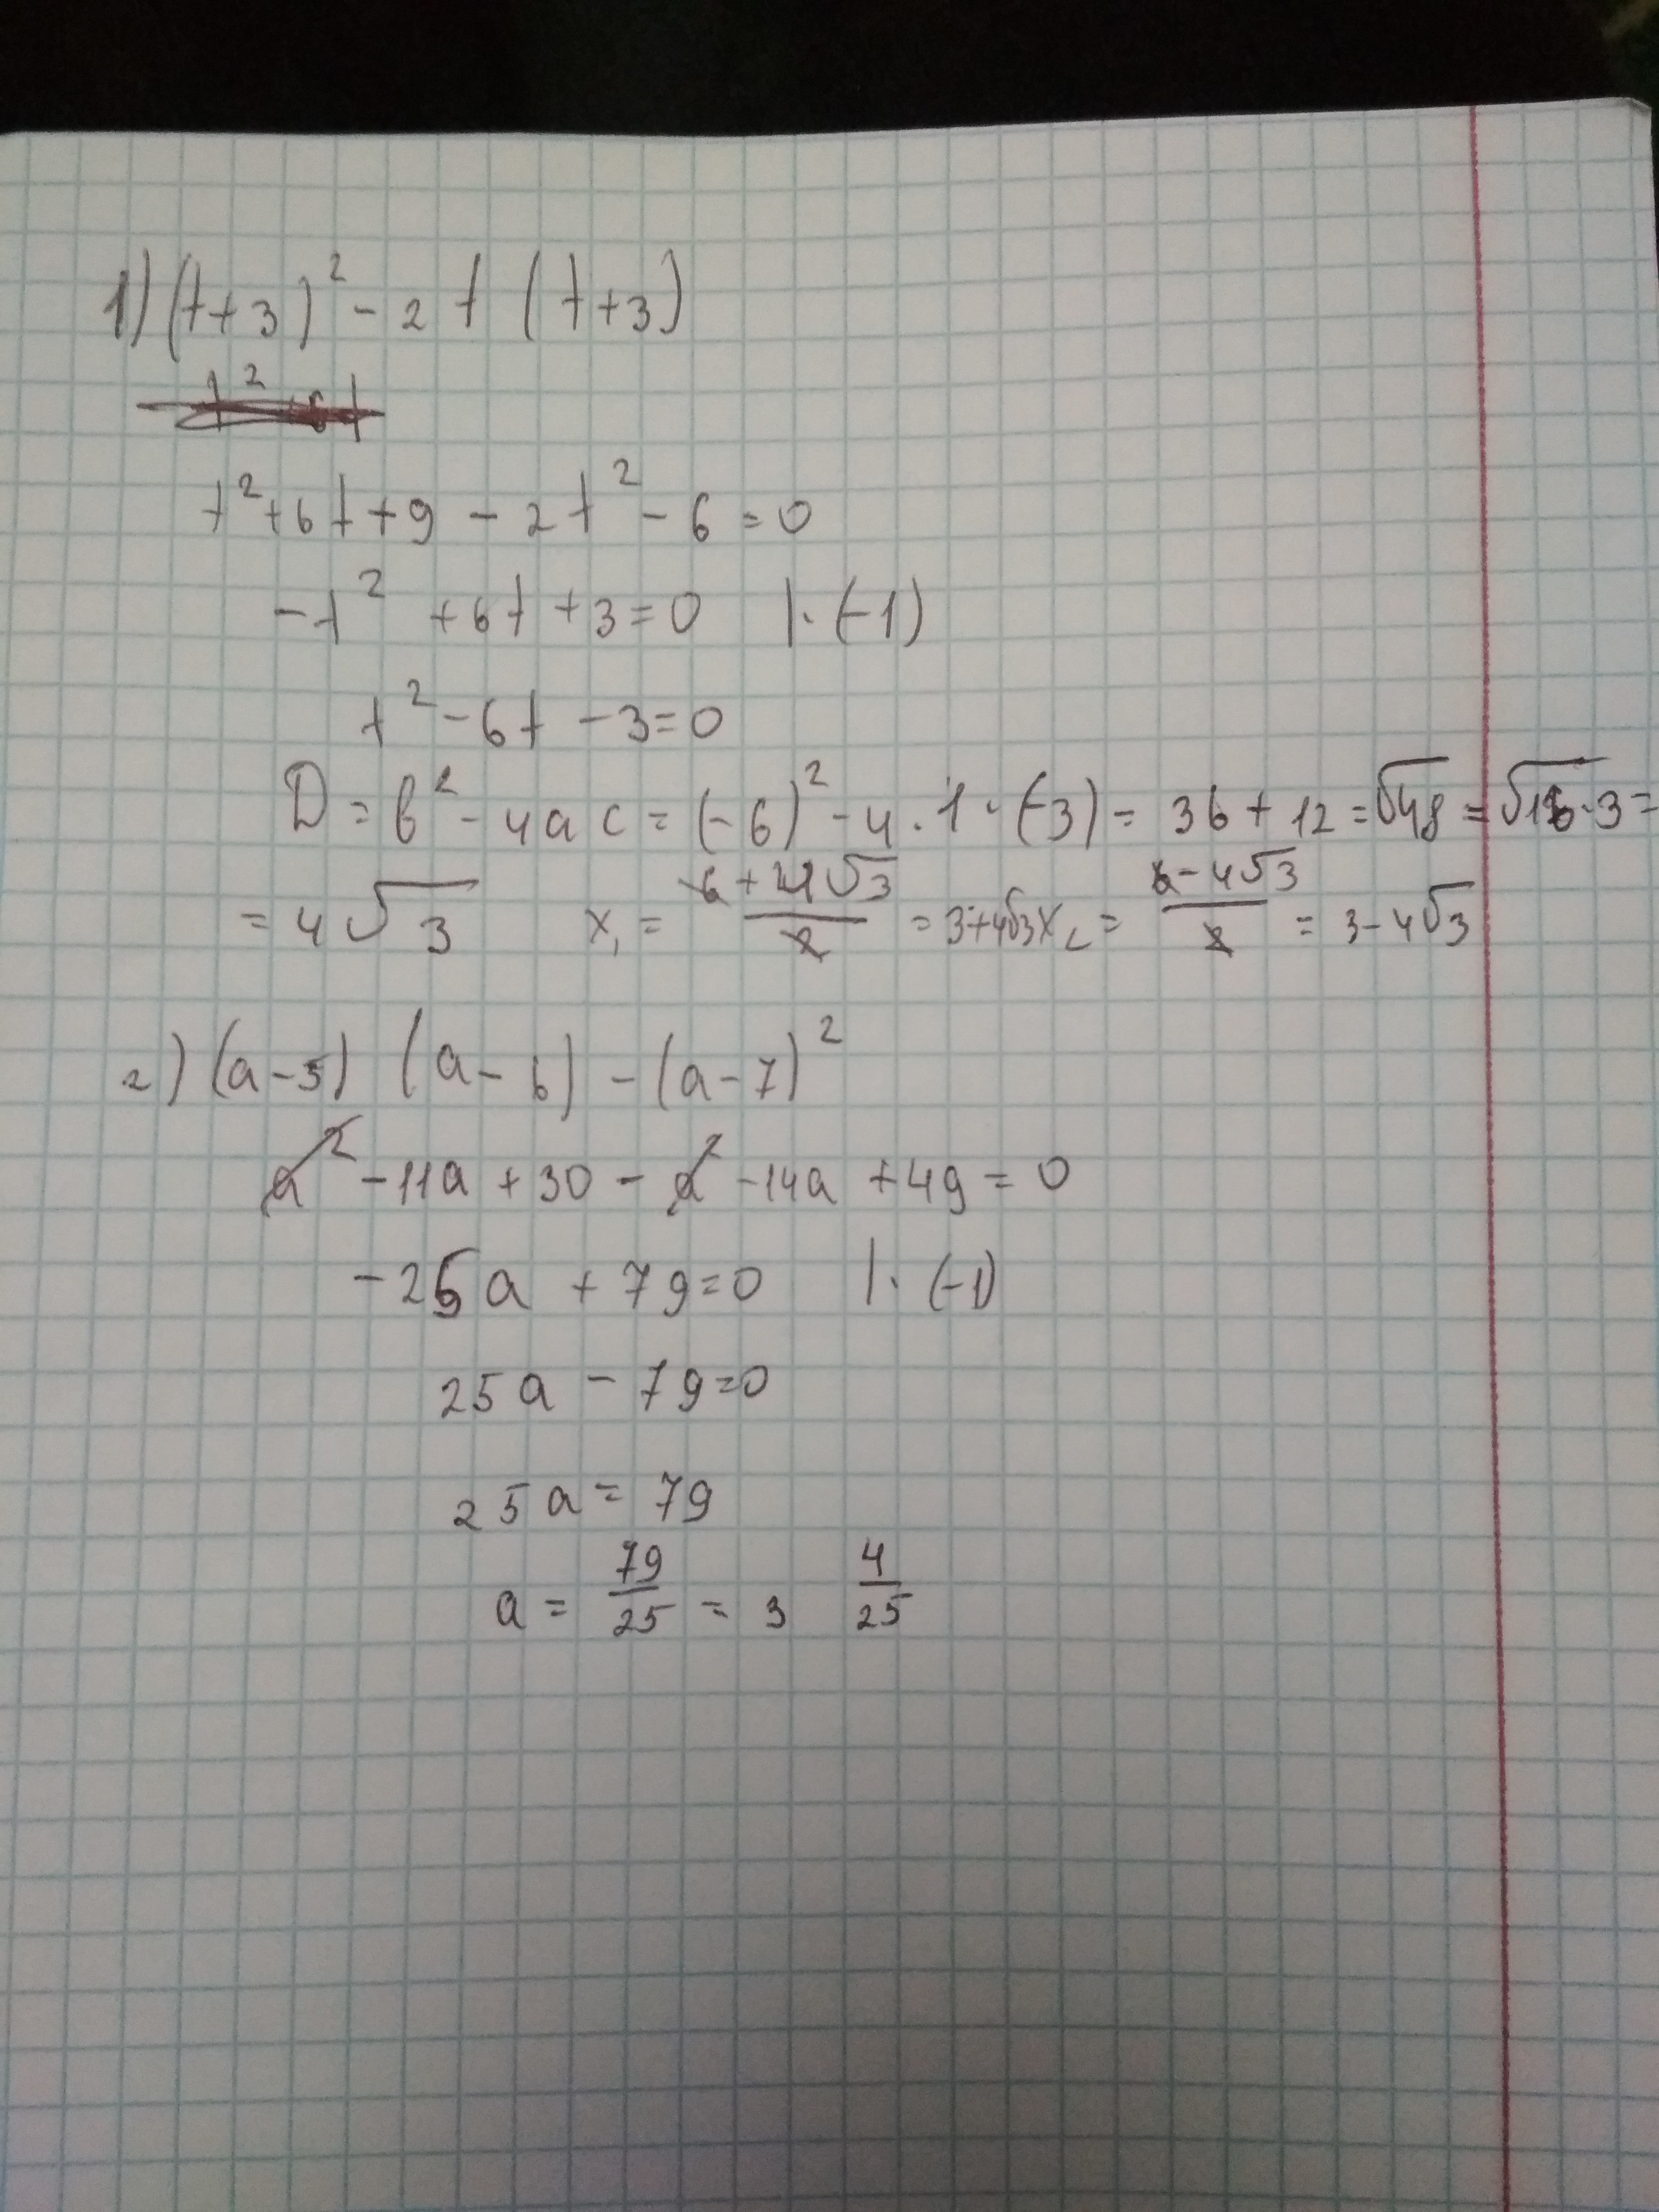 1) (t+3)² - 2t (t+3)
t² +6t
t²+6t+9 - 2t² - 6 = 0
-t² +6t +3=0 |·(-1)
t² - 6t - 3=0
D = b² - 4ac = (-6)² - 4·1·(-3) = 36 + 12 = √48 = √16·3 =
= 4√3 x₁ = (6+4√3)/2 = 3+4√3 x₂ = (6-4√3)/2 = 3-4√3
2) (a-5) (a-6) - (a-7)²
a² - 11a + 30 - a² - 14a + 49 = 0
-25a + 79=0 |·(-1)
25a - 79=0
25a = 79
a = 79/25 = 3 4/25